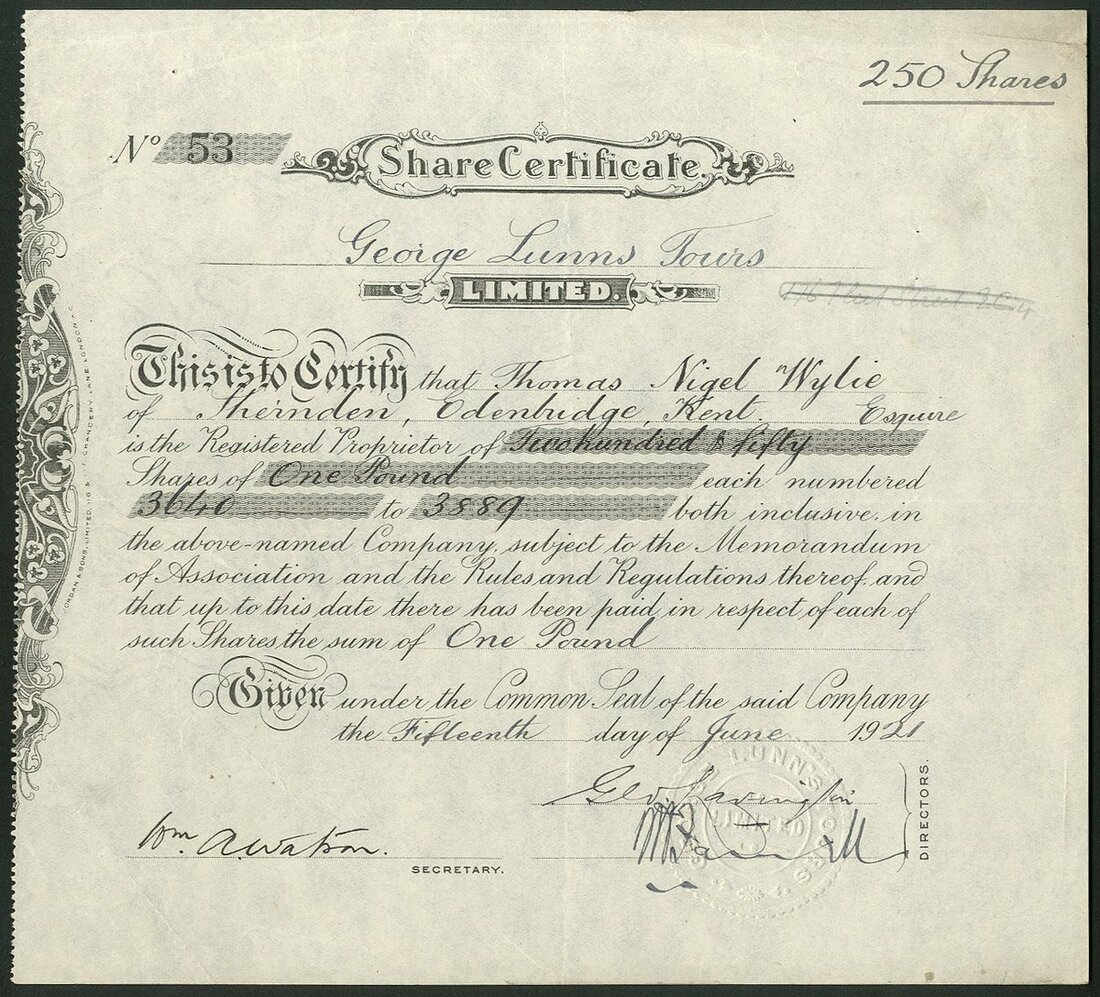 250 Shares
Nº 53
Share Certificate.
George Lunns Tours
LIMITED.
This is to Certify that Thomas Nigel Wylie
of Shernden, Edenbridge, Kent. Esquire
is the Registered Proprietor of Two hundred & fifty
Shares of One Pound each numbered
3640 to 3889 both inclusive, in
the above-named Company, subject to the Memorandum
of Association and the Rules and Regulations thereof, and
that up to this date there has been paid in respect of each of
such Shares the sum of One Pound
Given under the Common Seal of the said Company
the Fifteenth day of June 1921
Geo Lavington
Wm A. Watson.
SECRETARY.
DIRECTORS.
LUNNS TOURS
LIMITED
JORDAN & SONS, LIMITED, 116 & 117 CHANCERY LANE, LONDON, W.C.